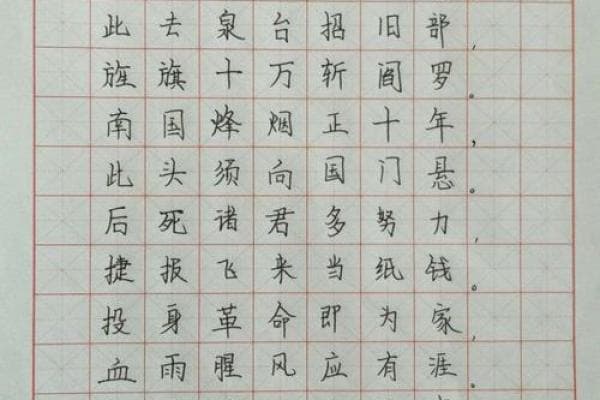 此去泉台招旧部,
旌旗十万斩阎罗。
南国烽烟正十年,
此头须向国门悬。
后死诸君多努力,
捷报飞来当纸钱。
投身革命即为家,
血雨腥风应有涯。